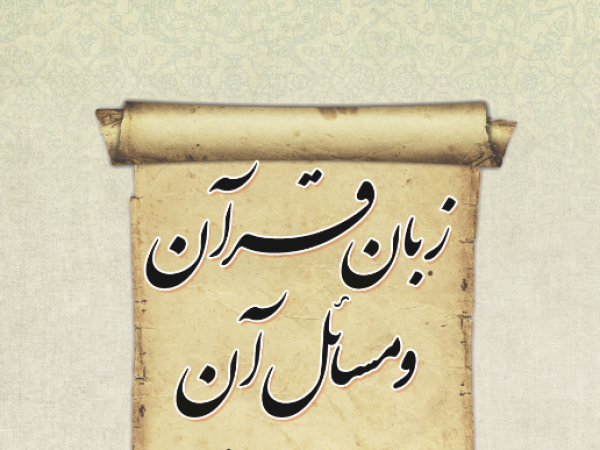 زبان قرآن
ومسائل آن